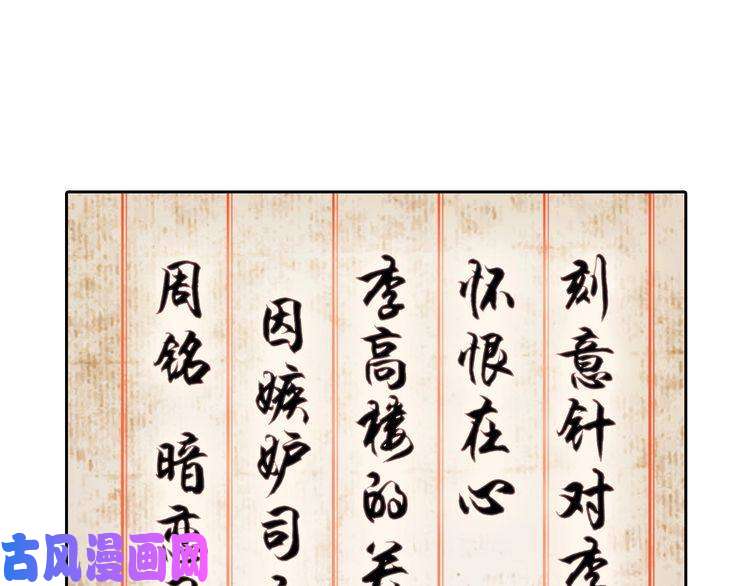 周铭 暗恋
因嫉妒司
李高楼的关
怀恨在心
刻意针对李
古风漫画网